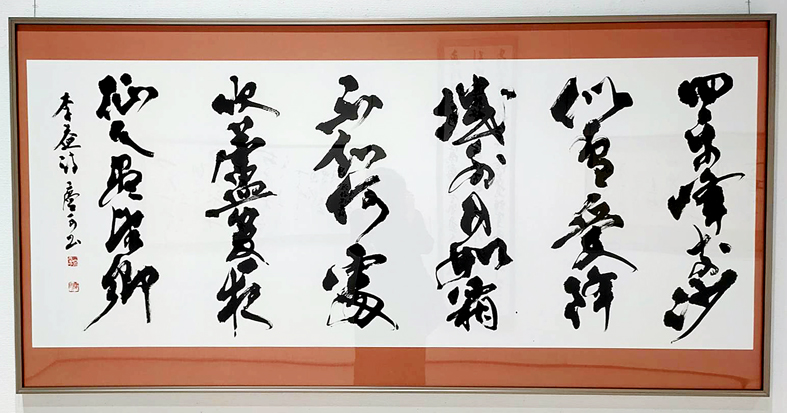 回樂峰前沙
似雪受降
城外月如霜
不知何處
吹蘆管一夜
征人盡望鄉
李益詩